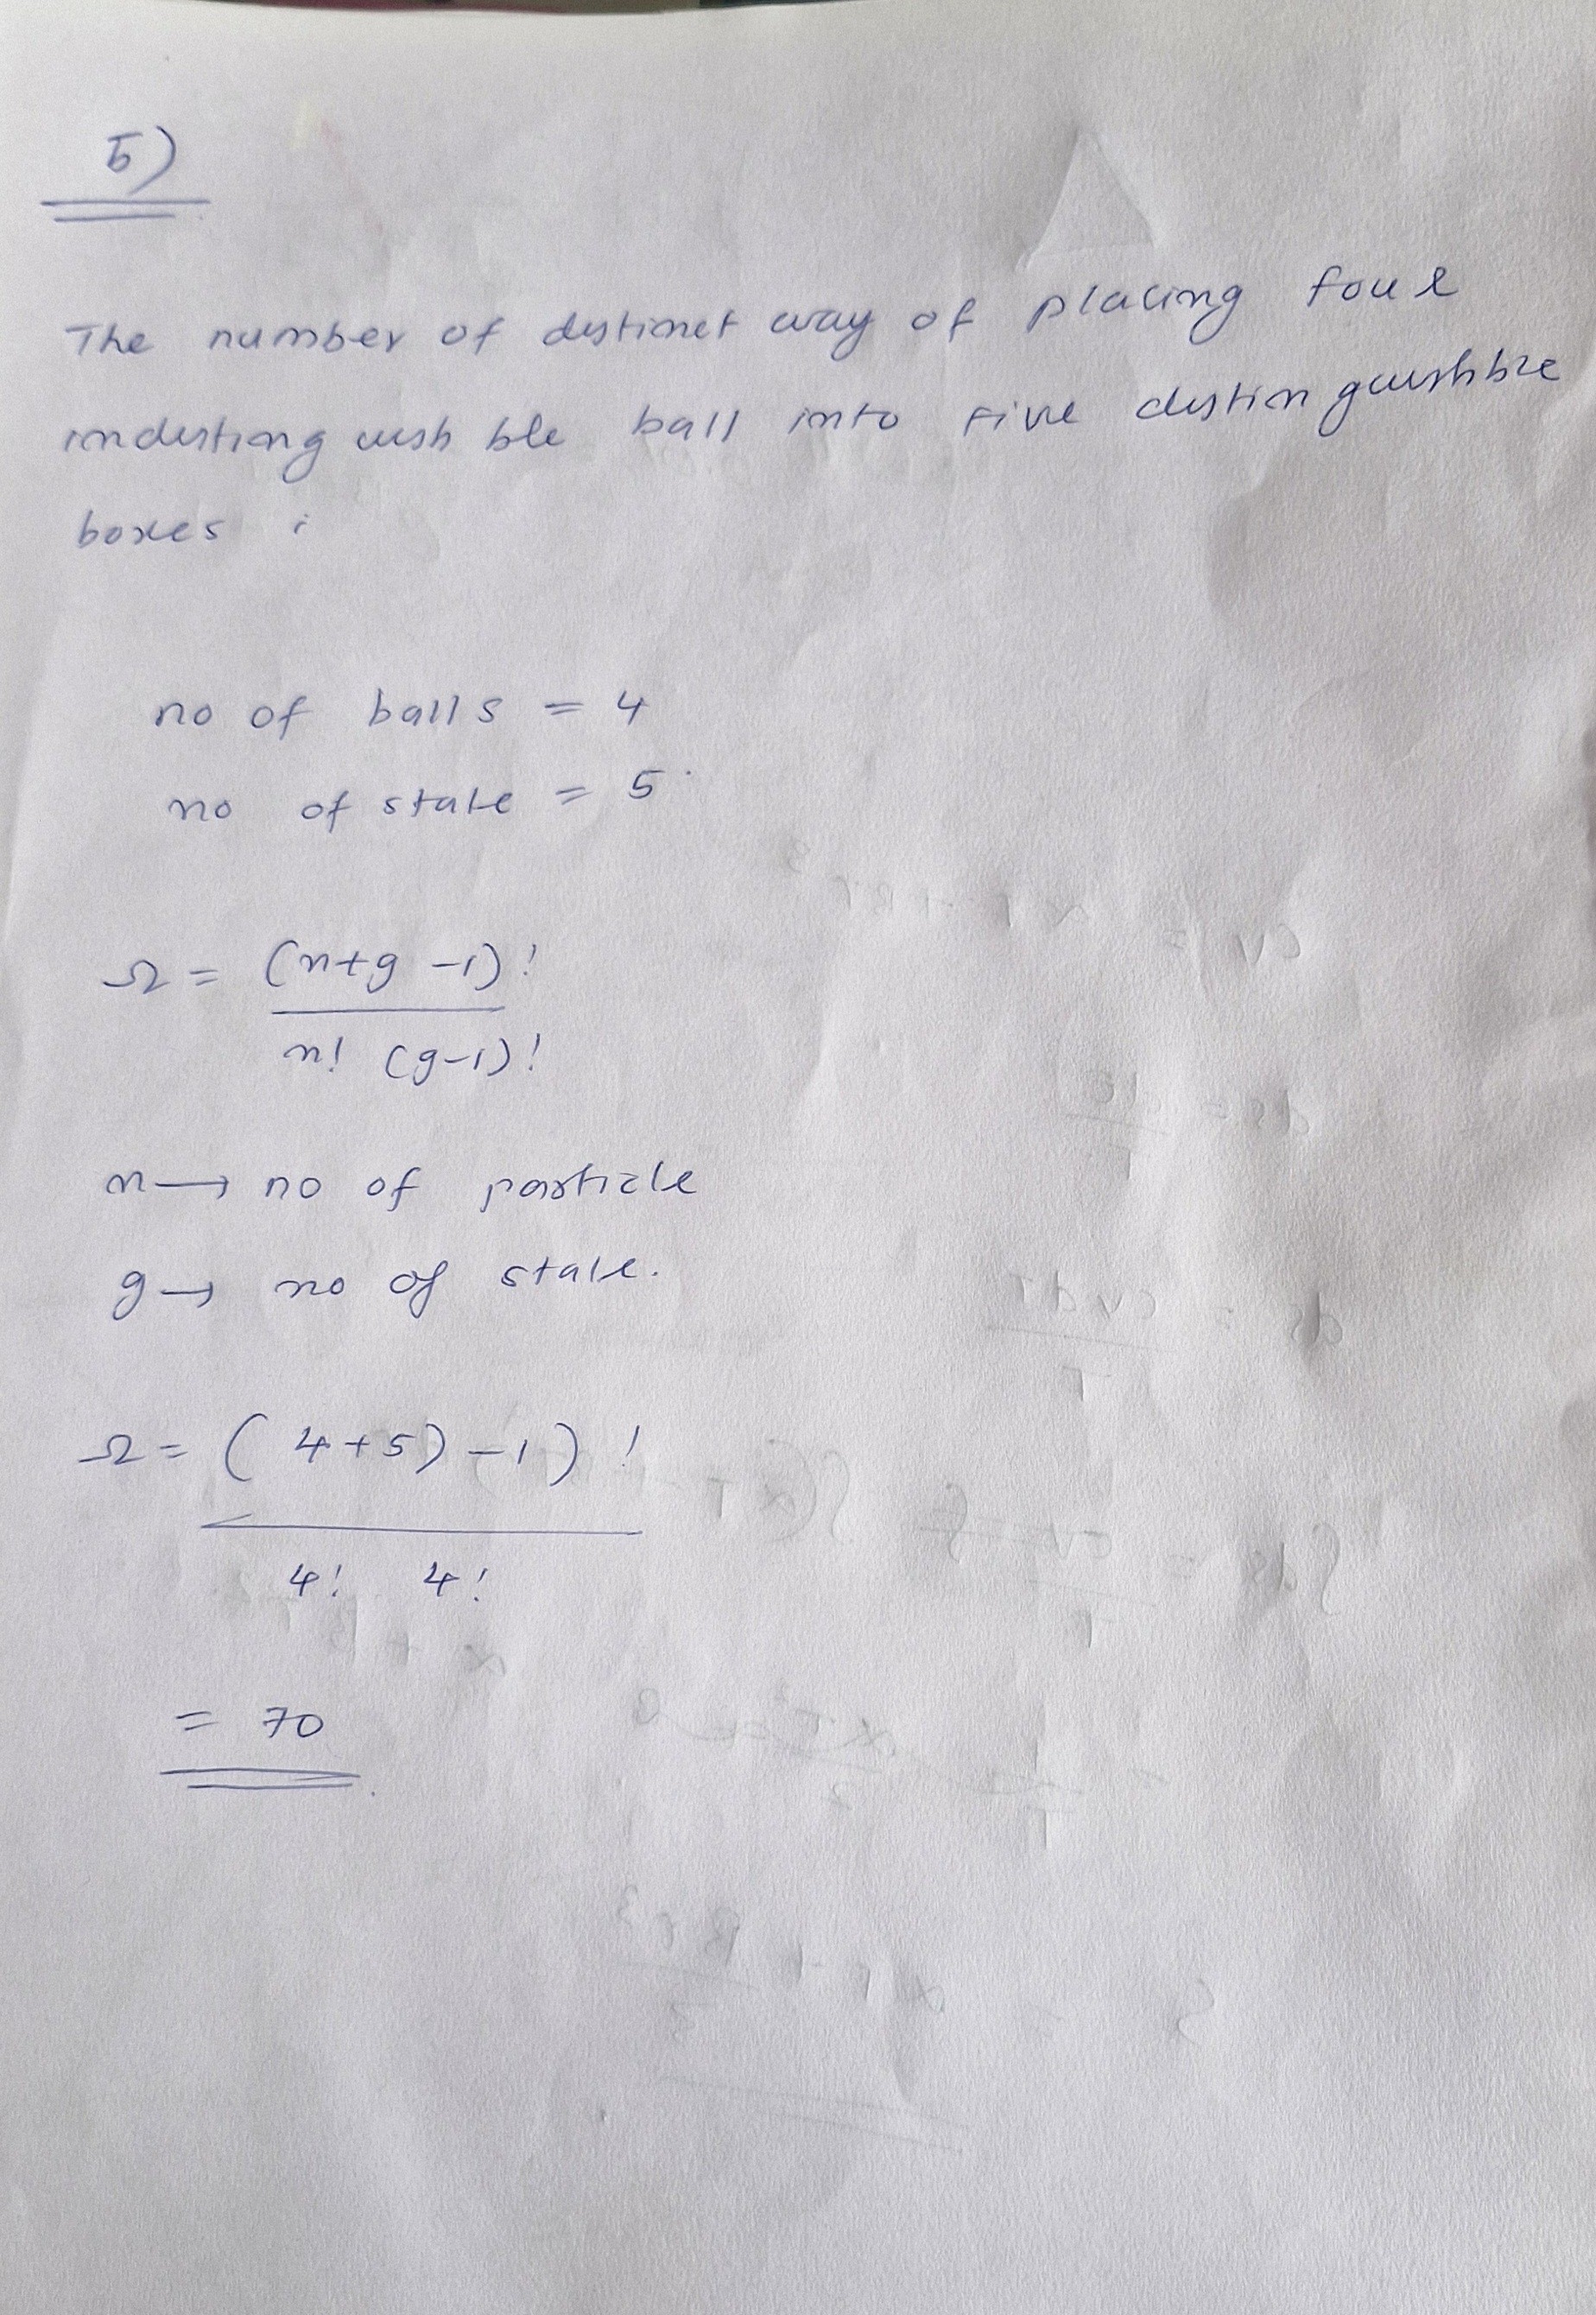 5)
The number of distinct way of placing four
indistinguishble ball into five distinguishble
boxes :
no of balls = 4
no of state = 5
Ω = (n+g -1)!
n! (g-1)!
n → no of particle
g → no of state.
Ω = ( 4+5) -1) !
4! 4!
= 70